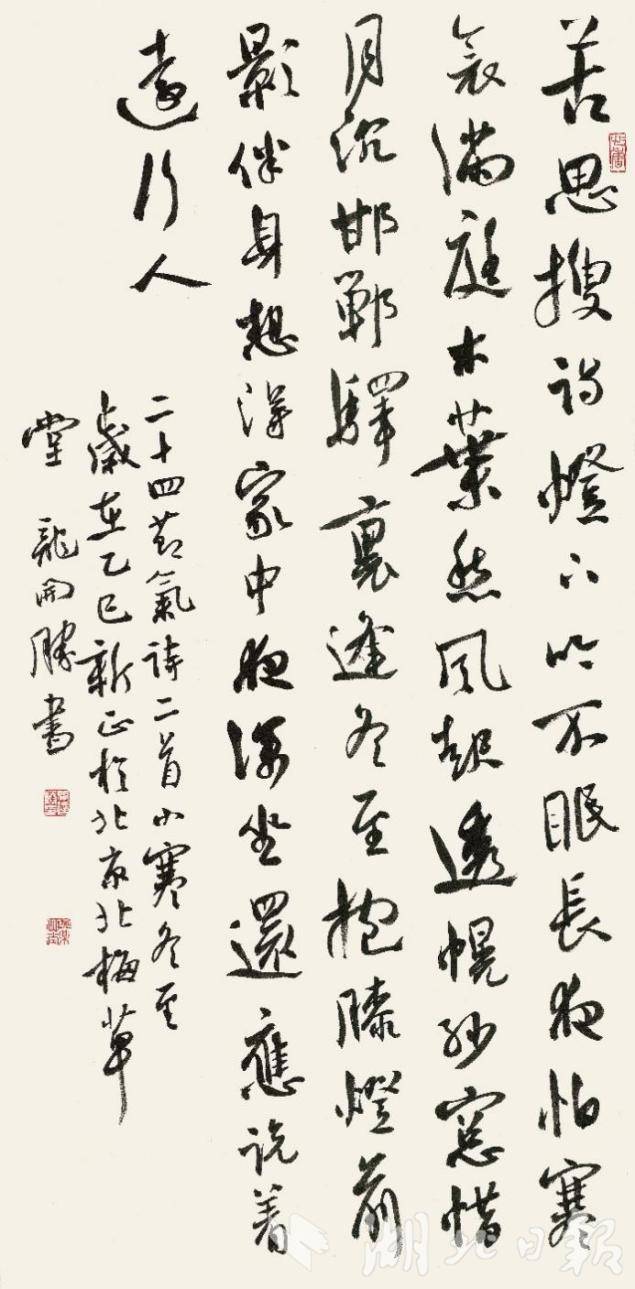 苦思搜詩燈下吟不眠長夜怕寒
衾滿庭木葉愁風起透幌紗窗惜
月沉邯鄲驛裏逢冬至抱膝燈前
影伴身想得家中夜深坐還應說着
遠行人
二十四節氣詩二首小寒冬至
歲在乙巳新正於北京北梅草
堂龍開勝書
湖北日報